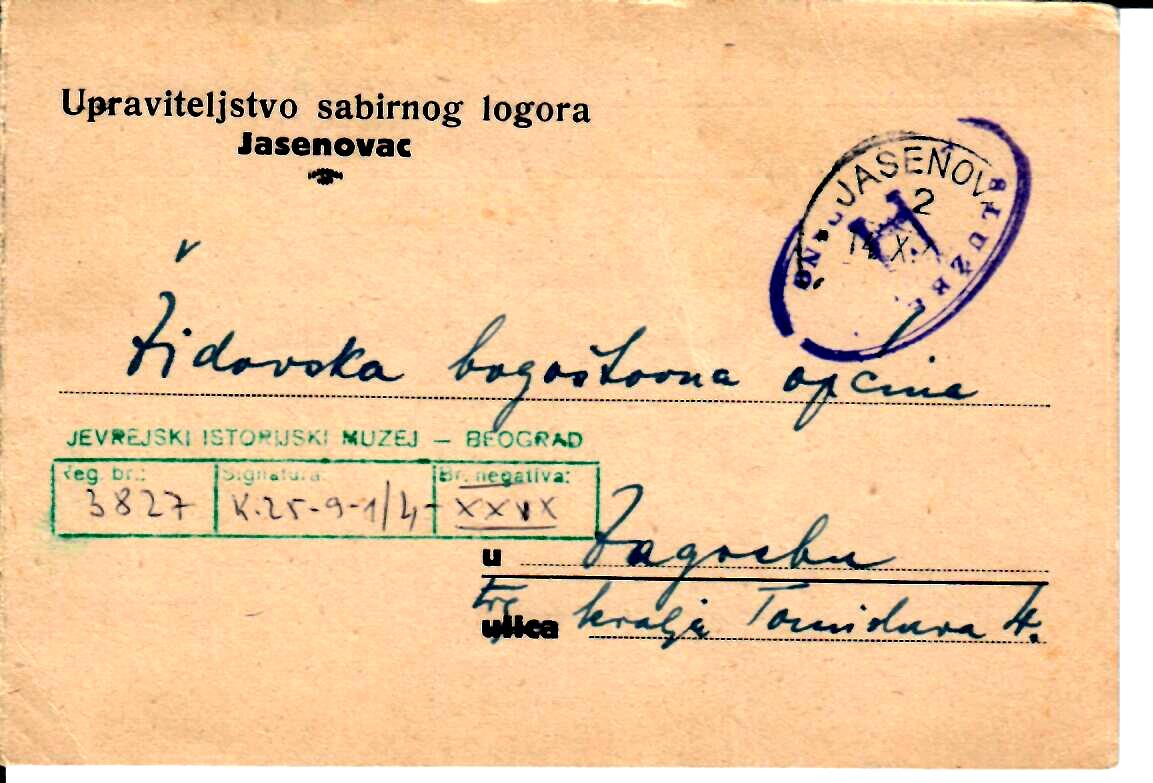 Upraviteljstvo sabirnog logora
Jasenovac
JASENOV
2
14 X.
SLUŽBE
Židovska bogoštovna općina
JEVREJSKI ISTORIJSKI MUZEJ — BEOGRAD
Reg. br.: Signatura: Br. negativa:
3827 K.25-9-1/4- XXVIX
u Zagrebu
trg
ulica kralja Tomislava 4.